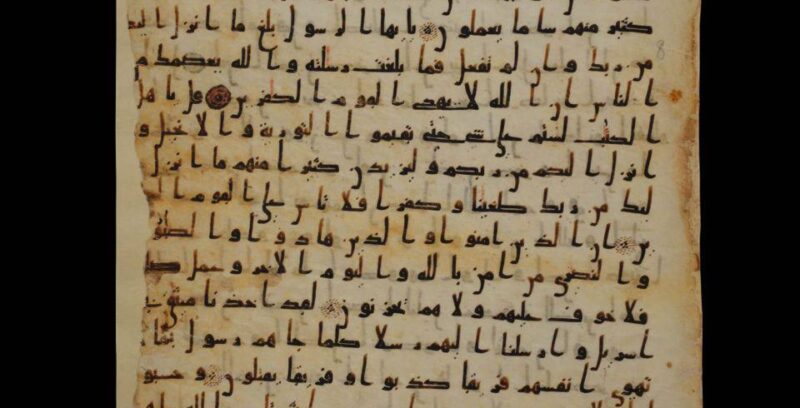 كثير منهم سا ما يعملون يايها الرسول بلغ ما انزل اليك
من ربك وان لم تفعل فما بلغت رسلته والله يعصمك م
الناس ان الله لا يهدى القوم الكفرين قل ياهل
الكتب لستم على شى حتى تقيموا التورية والانجيل و
ما انزل اليكم من ربكم وليزيدن كثيرا منهم ما انزل
ليك من ربك طغينا وكفرا فلا تاس على القوم
ين ان الذين امنوا والذين هادوا والصبو
والنصرى من امن بالله واليوم الاخر وعمل
فلا خوف عليهم ولا هم يحزنون لقد اخذنا ميثق
اسريل وارسلنا اليهم رسلا كلما جاهم رسول بما
تهوى انفسهم فريقا كذبوا وفريقا يقتلون وحسبو